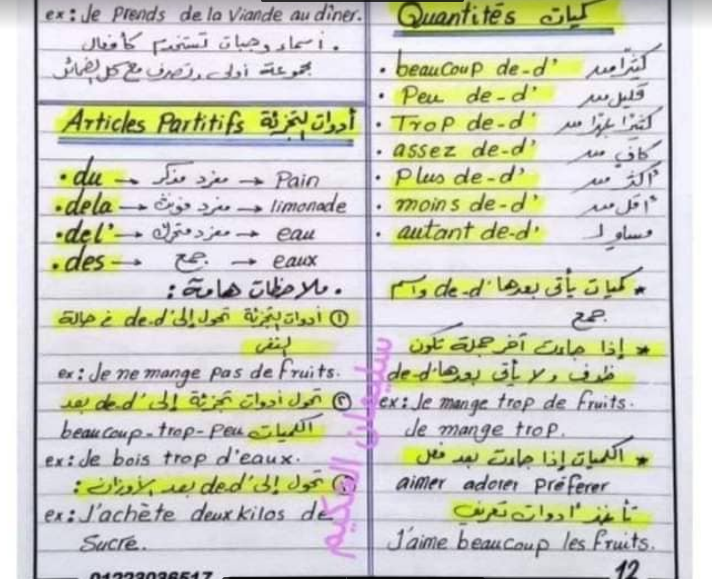 ex: Je prends de la Viande au dîner.
. أسماء وجبات تستخدم كأفعال
مجموعة أولى وتصرف مع كل الضمائر
Articles Partitifs أدوات التجزئة
• du → مفرد مذكر → Pain
• dela → مفرد مؤنث → limonade
• del' → مفرد متحرك → eau
• des → جمع → eaux
. ملاحظات هامة :
① أدوات التجزئة تحول إلى de-d' في حالة
النفى
ex: Je ne mange pas de fruits.
② تحول أدوات تجزئة إلى de-d' بعد
الكميات beaucoup-trop-peu
ex: Je bois trop d'eaux.
تحول إلى de-d' بعد الأوزان :
ex: J'achète deux kilos de
Sucre.
01223036517
Quantités كميات
• beaucoup de-d' كثيرًا من
• Peu de-d' قليل من
• Trop de-d' كثيرًا جدًا من
• assez de-d' كافٍ من
• Plus de-d' أكثر من
• moins de-d' أقل من
• autant de-d' مساوٍ لـ
* كميات يأتى بعدها de-d' واسم
جمع
* إذا جاءت آخر جملة تكون
ظروف ولا يأتى بعدها de-d'
ex: Je mange trop de fruits.
Je mange trop.
* الكميات إذا جاءت بعد فعل
aimer adorer préférer
تأخذ أدوات تعريف
J'aime beaucoup les fruits.
12
سليمان الحكيم